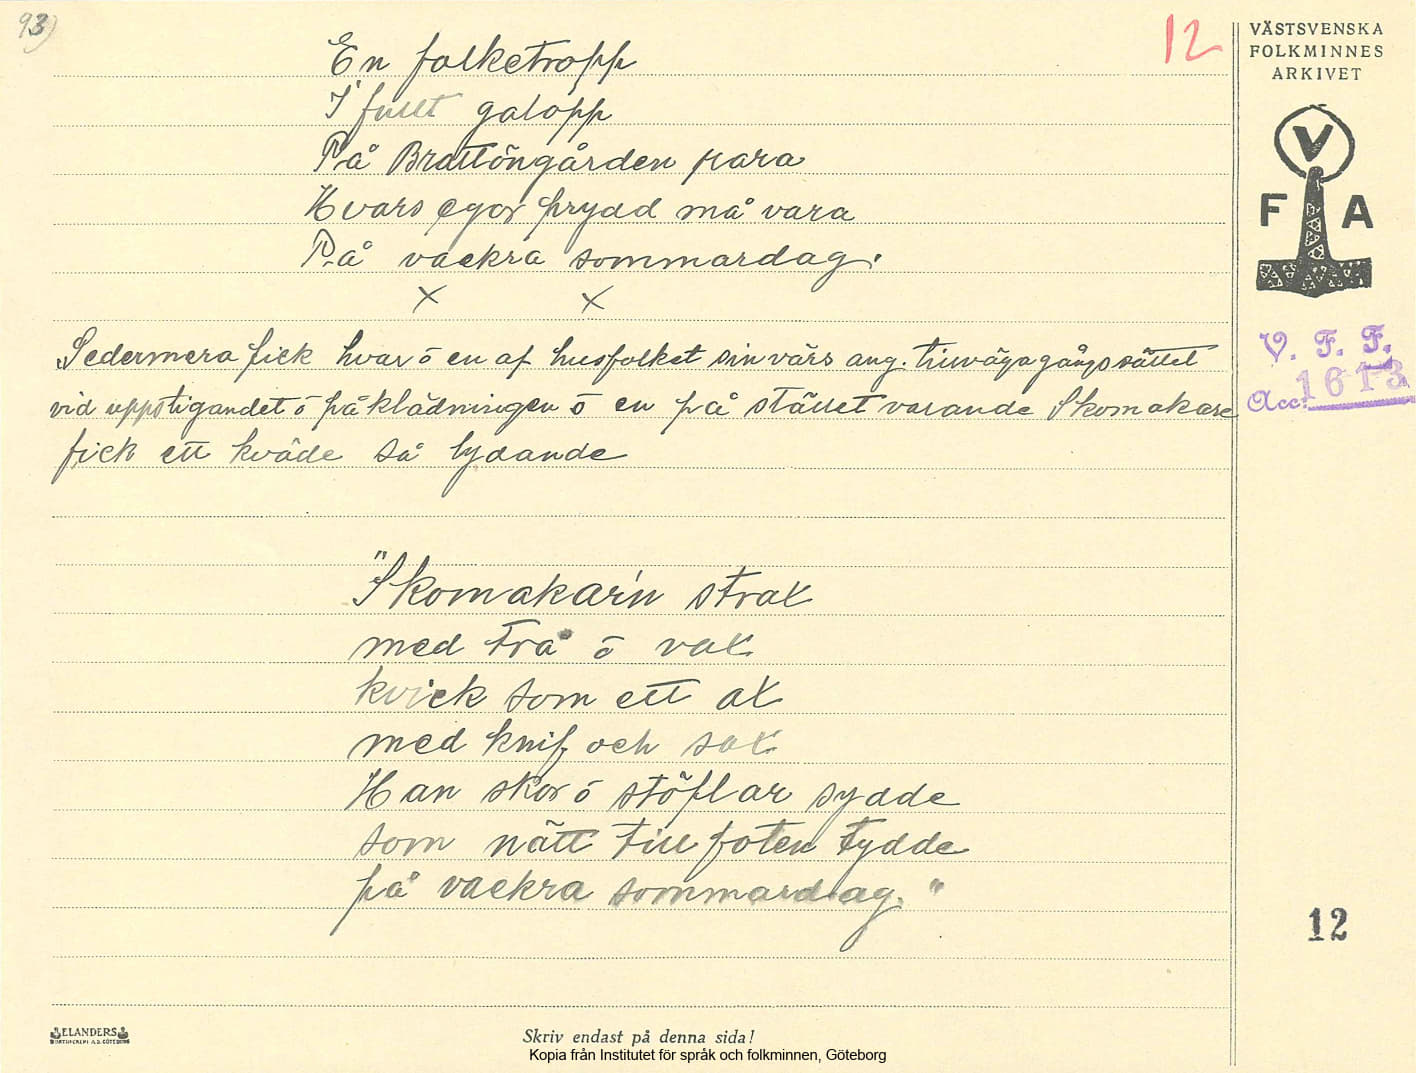 93)
12
VÄSTSVENSKA
FOLKMINNES
ARKIVET
En folketropp
I fullt galopp
På Brattöngården para
Hvars egor prydd må vara
På vackra sommardag.
x x
V
F A
Sedermera fick hvar ō en af husfolket sin värs ang. tillvägagångssättet
vid uppstigandet ō påklädningen ō en på stället varande Skomakare
fick ett kväde så lydande
V. F. F.
Acc: 1613
"Skomakar'n strax
med trå ō vax
kvick som ett ax
med knif och sax
Han skor ō stöflar sydde
som nätt till foten tydde
på vackra sommardag."
12
ELANDERS
Skriv endast på denna sida!
Kopia från Institutet för språk och folkminnen, Göteborg